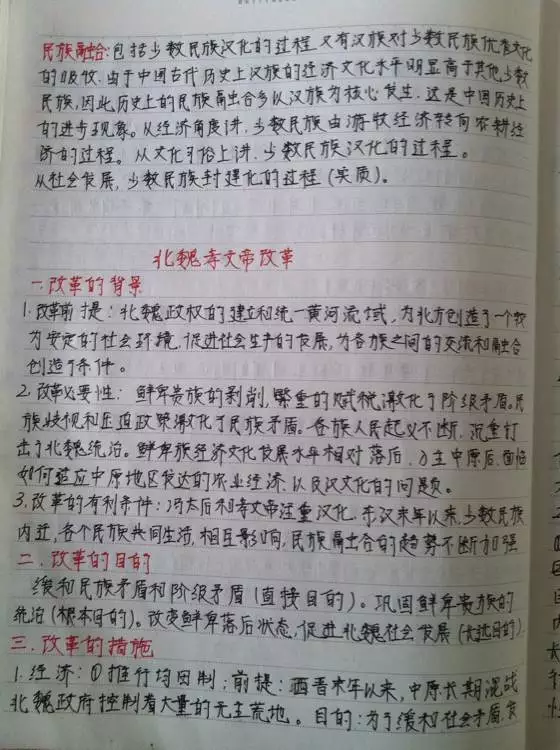 民族融合:包括少数民族汉化的过程 又有汉族对少数民族优秀文化
的吸收.由于中国古代历史上汉族的经济文化水平明显高于其他少数
民族,因此历史上的民族融合多以汉族为核心发生.这是中国历史上
的进步现象。从经济角度讲,少数民族由游牧经济转向农耕经
济的过程。从文化习俗上讲.少数民族汉化的过程。
从社会发展,少数民族封建化的过程(实质)。
北魏孝文帝改革
一.改革的背景
1.改革前提:北魏政权的建立和统一黄河流域,为北方创造了一个较
为安定的社会环境.促进社会生产的发展,为各族之间的交流和融合
创造了条件。
2.改革必要性:鲜卑贵族的剥削,繁重的赋税激化了阶级矛盾。民
族歧视和压迫政策激化了民族矛盾。各族人民起义不断.沉重打
击了北魏统治。鲜卑族经济文化发展水平相对落后.入主中原后.面临
如何适应中原地区发达的农业经济.以及汉文化的问题。
3.改革的有利条件:冯太后和孝文帝注重汉化.东汉末年以来,少数民族
内迁,各个民族共同生活,相互影响,民族融合的趋势不断加强
二.改革的目的
缓和民族矛盾和阶级矛盾(直接目的)。巩固鲜卑贵族的
统治(根本目的)。改变鲜卑落后状态,促进北魏社会发展(长远目的).
三.改革的措施
1.经济:①推行均田制:前提:西晋末年以来,中原长期混战
北魏政府控制着大量的无主荒地。目的:为了缓和社会矛盾,发